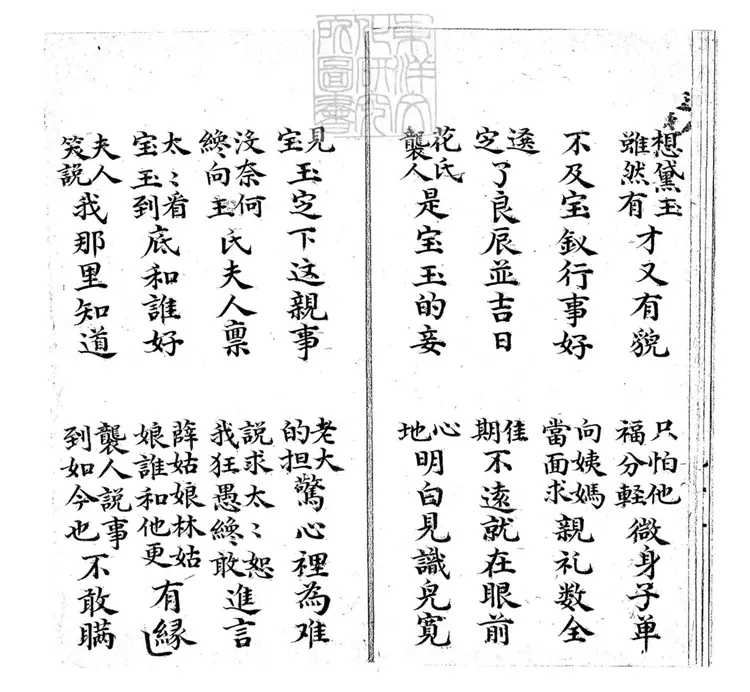 想黛玉雖然有才又有貌　只怕他福分輕微身子单
不及宝釵行事好　向姨媽當面求親礼数全
遂定了良辰並吉日　佳期不遠就在眼前
花氏襲人是宝玉的妾　心地明白見識皃寛
見宝玉定下这親事　老大的担驚心裡為难
没奈何纔向王氏夫人禀　說求太〻恕我狂愚纔敢進言
太〻看宝玉到底和誰好　薛姑娘林姑娘誰和他更有縁
夫人笑説我那里知道　襲人説事到如今也不敢瞒
東洋文
化研究
所圖書